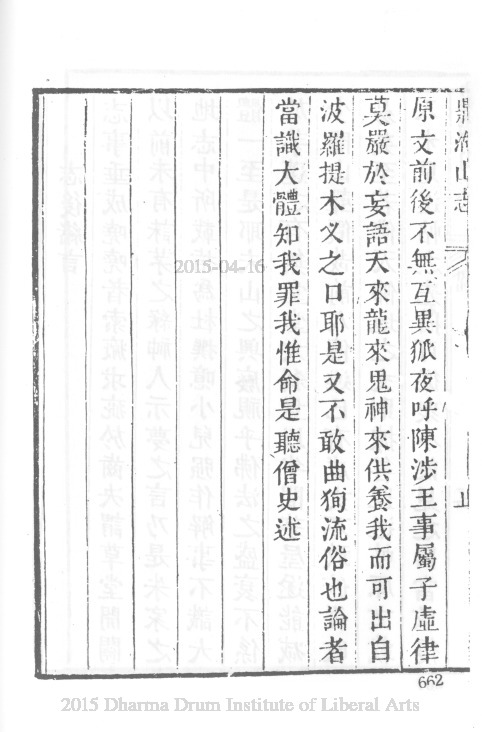 鼎湖山志
原文前後不無互異狐夜呼陳涉王事屬子虛律
莫嚴於妄語天來龍來鬼神來供養我而可出自
波羅提木叉之口耶是又不敢曲狥流俗也論者
當識大體知我罪我惟命是聽僧史述
2015-04-16
662
2015 Dharma Drum Institute of Liberal Arts